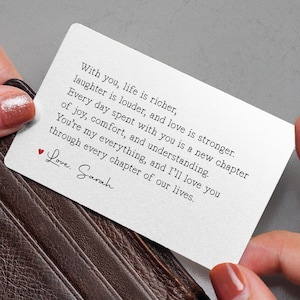 With you, life is richer,
laughter is louder, and love is stronger.
Every day spent with you is a new chapter
of joy, comfort, and understanding.
You're my everything, and I'll love you
through every chapter of our lives.
Love, Sarah